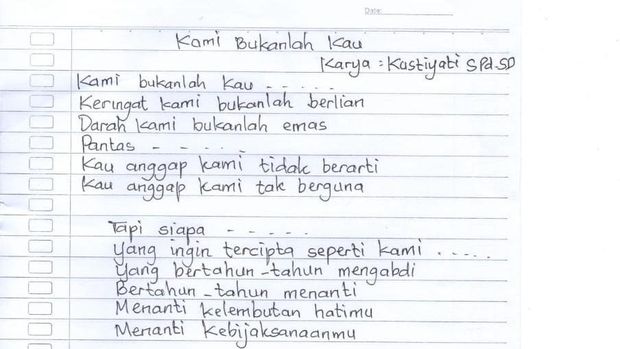 Date:
Kami Bukanlah Kau
Karya : Kustiyati SPd.SD
Kami bukanlah kau - - - - -
Keringat kami bukanlah berlian
Darah kami bukanlah emas
Pantas - - - - -
Kau anggap kami tidak berarti
Kau anggap kami tak berguna
Tapi siapa - - - - -
Yang ingin tercipta seperti kami . . . . .
Yang bertahun-tahun mengabdi
Bertahun-tahun menanti
Menanti kelembutan hatimu
Menanti kebijaksanaanmu